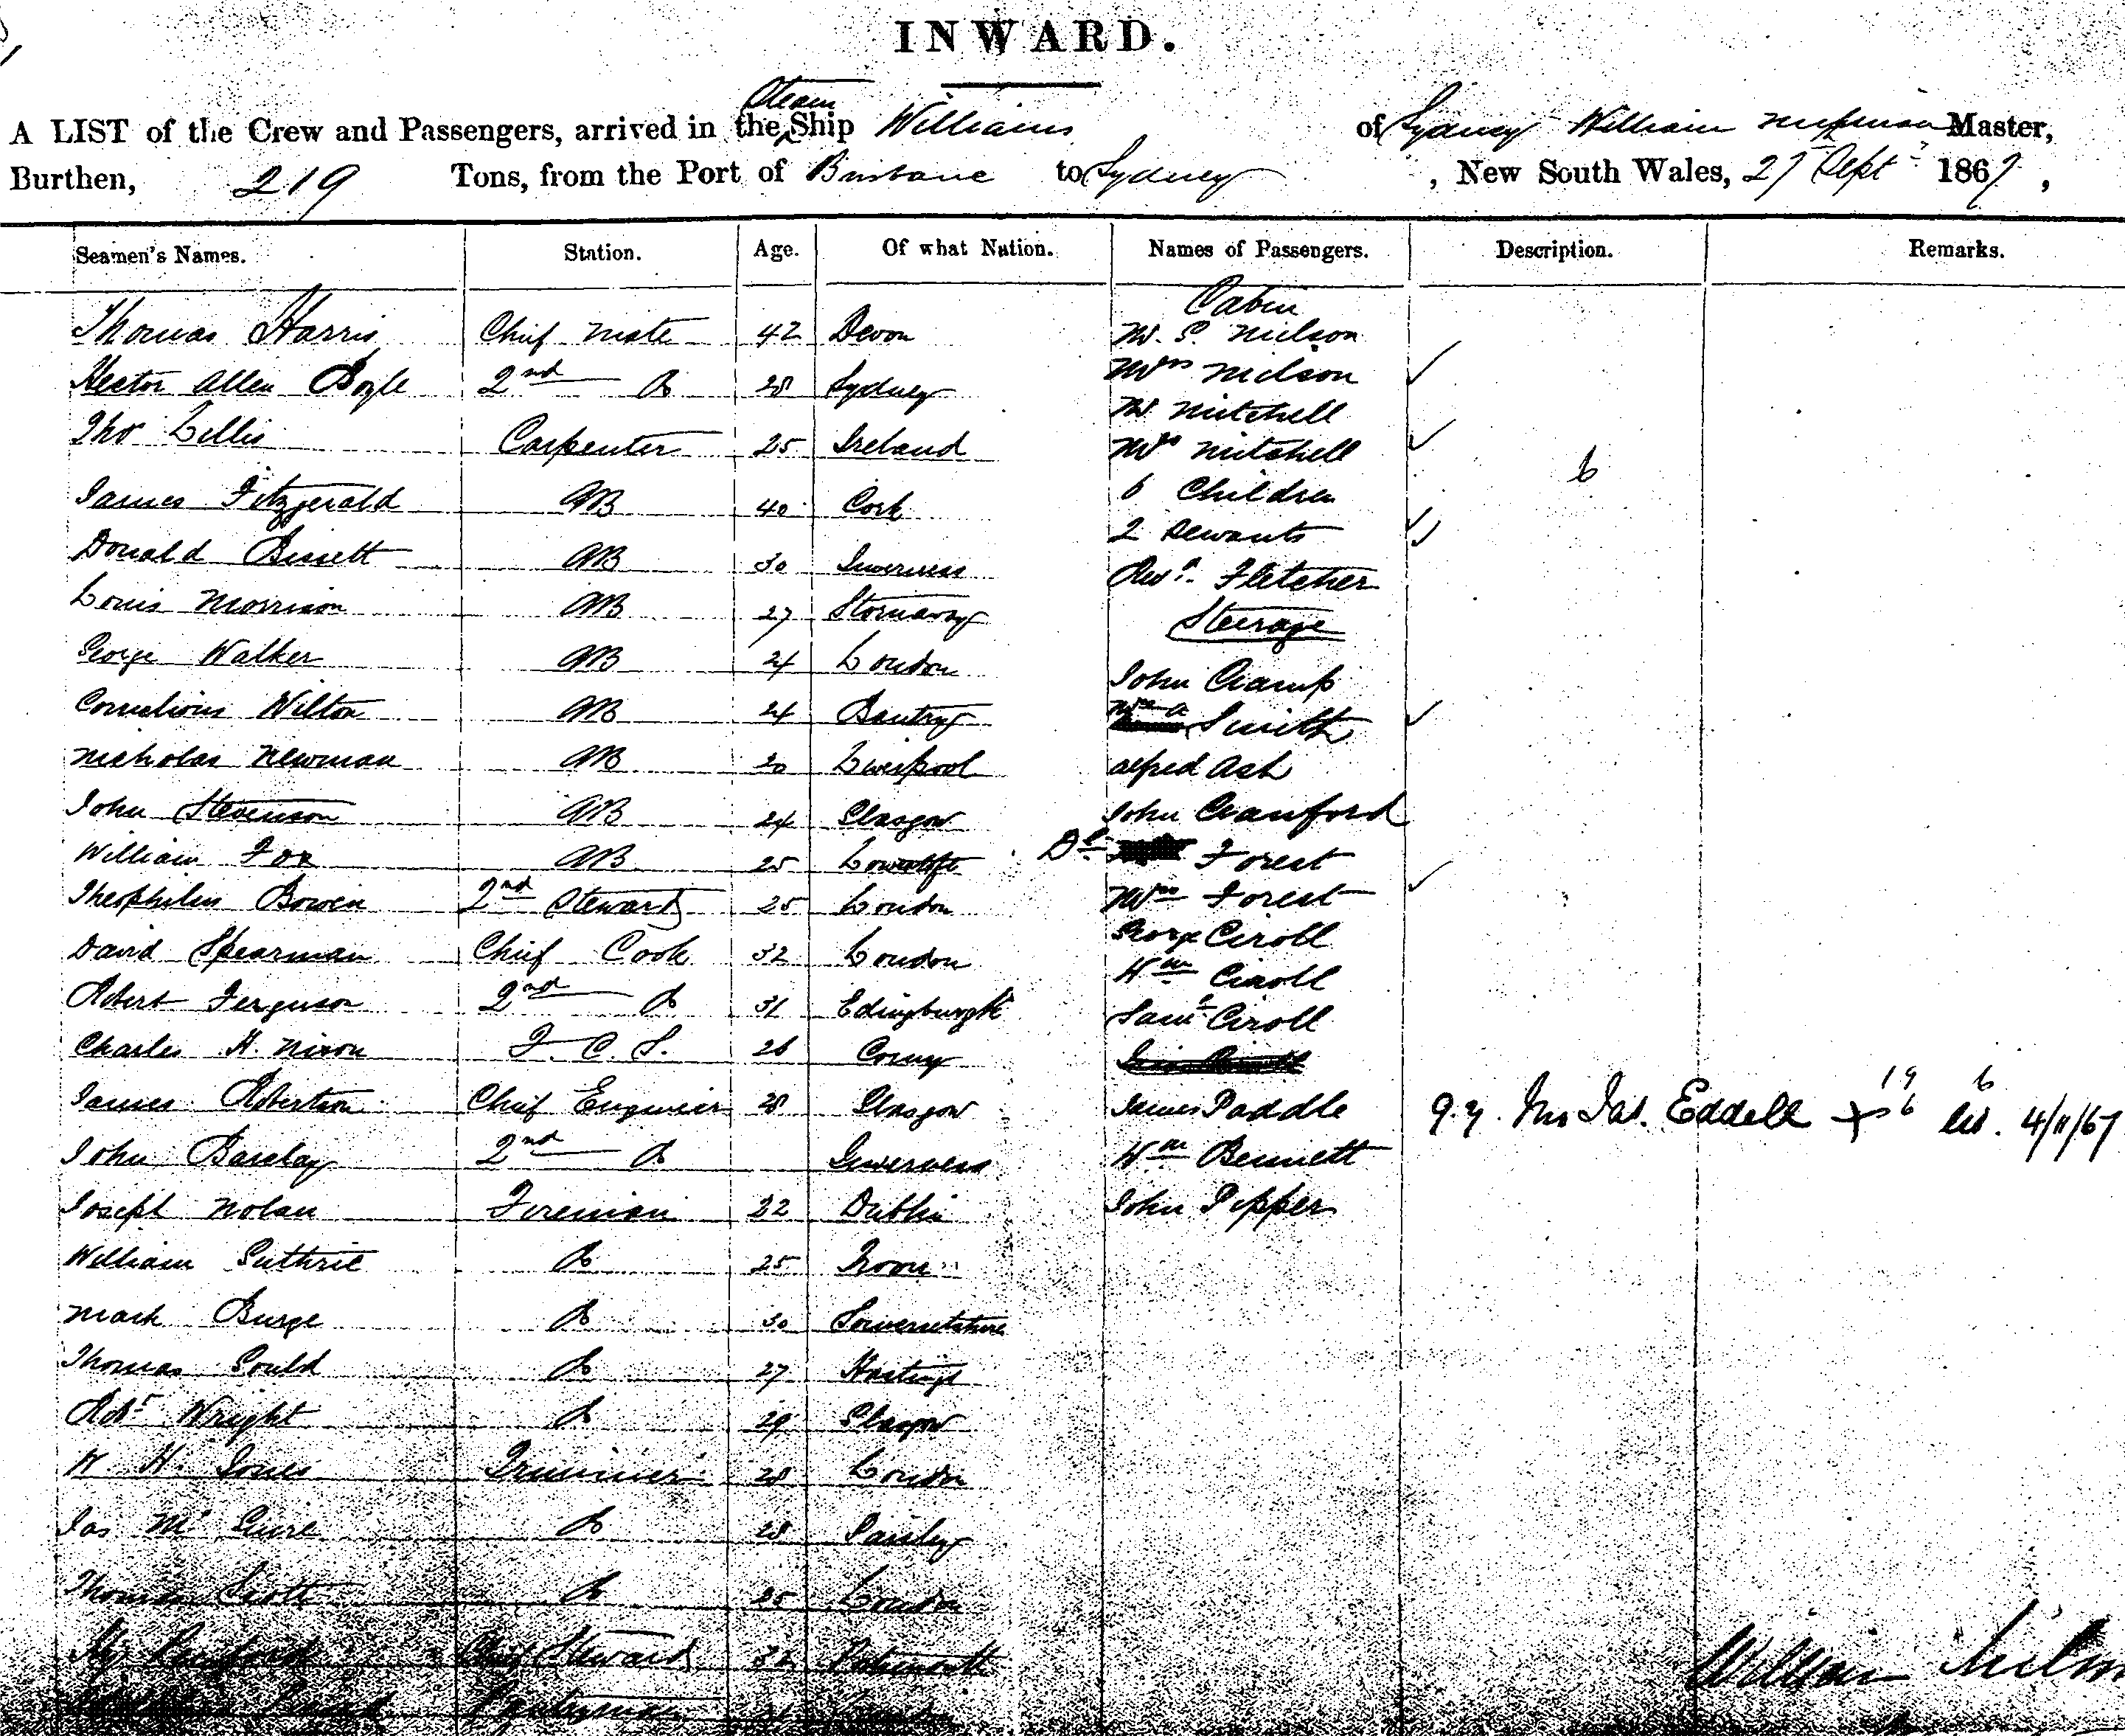 INWARD.
Steam
A LIST of the Crew and Passengers, arrived in the Ship Williams of Sydney William Master,
Burthen, 219 Tons, from the Port of Brisbane to Sydney, New South Wales, 27 Sept 1867,
Seamen's Names. Station. Age. Of what Nation. Names of Passengers. Description. Remarks.
Cabin
Thomas Harris Chief Mate 42 Devon Mr. S. Nielson
Hector Allen Boyle 2nd Do 28 Sydney Mrs Nielson
Mr Mitchell
Tho Lillis Carpenter 25 Ireland Mrs Mitchell 6
James Fitzgerald AB 40 Cork 6 Children
2 Servants
Donald Bissett AB 30 Inverness Revd. Fletcher
Louis Morrison AB 27 Stornaway Steerage
George Walker AB 24 London John Cramp
Cornelious Wilton AB 24 Bantry Smith
Nicholas Newman AB 20 Liverpool Alfred Ash
John Stevenson AB 24 Glasgow John Cranford
William Fox AB 25 Lowestoft Dr Forest
Theophilus Bowen 2nd Steward 25 London Mrs Forest
David Spearman Chief Cook 32 London George Ciroll
Wm Ciroll
Robert Ferguson 2nd Do 31 Edingburgh Saml Ciroll
Charles H. Nixon F. C. S. 26
James Robertson Chief Engineer 28 Glasgow James Paddle Mrs Jas. Eddell 19 6 6 4/11/67
John Barclay 2nd Do Inverness Wm Bennett
Joseph Nolan Fireman 22 Dublin John Pepper
William Guthrie Do 25 Troon
Mark Burge Do 30 Somersetshire
Thomas Gould Do 27 Hastings
Robt Wright Do 29 Glasgow
W H. Jones Trimmer 28 London
Jas McGuire Do 28 Paisley
Thomas Scott Do 25 London
Chief Steward 32
Pantryman
William